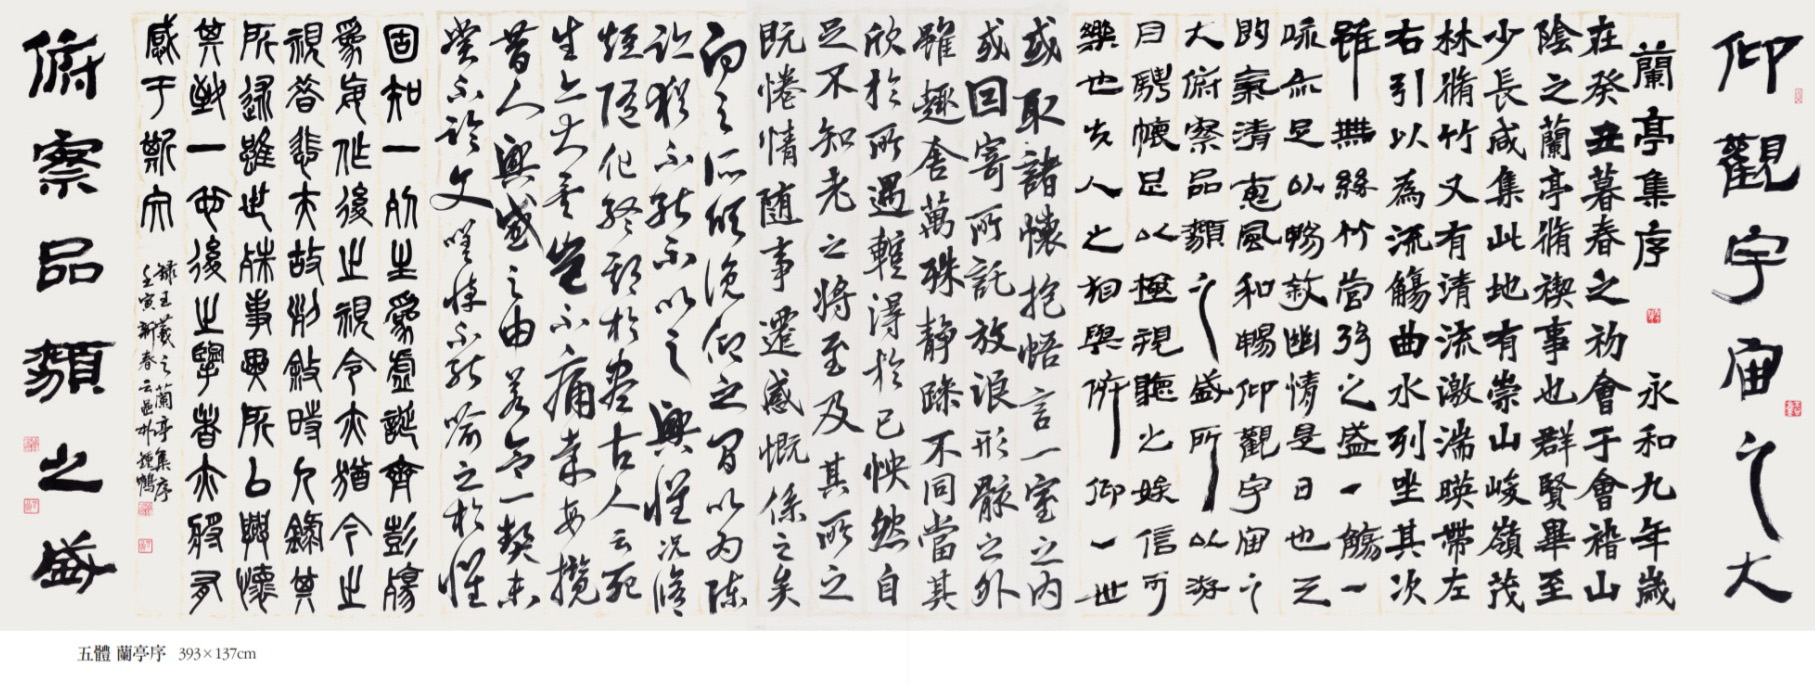 仰觀宇宙之大
蘭亭集序 永和九年歲
在癸丑暮春之初會于會稽山
陰之蘭亭脩禊事也群賢畢至
少長咸集此地有崇山峻嶺茂
林脩竹又有清流激湍暎帶左
右引以為流觴曲水列坐其次
雖無絲竹管弦之盛一觴一
詠亦足以暢敘幽情是日也天
朗氣清惠風和暢仰觀宇宙之
大俯察品類之盛所以游
目騁懷足以極視聽之娛信可
樂也夫人之相與俯仰一世
或取諸懷抱悟言一室之內
或因寄所託放浪形骸之外
雖趣舍萬殊靜躁不同當其
欣於所遇蹔得於己怏然自
足不知老之將至及其所之
既惓情随事遷感慨係之矣
向之所欣俛仰之間以為陳
迹猶不能不以之興懷況脩
短随化終期於盡古人云死
生亦大矣豈不痛哉每攬
昔人興感之由若合一契未
嘗不臨文嗟悼不能喻之於懷
固知一死生爲虛誕齊彭殤
爲妄作後之視今亦猶今之
視昔悲夫故列敘時人錄其
所述雖世殊事異所以興懷
其致一也後之攬者亦將有
感于斯文
錄王羲之蘭亭集序
壬寅新春云邑朴鍾鶴
俯察品類之盛
五體 蘭亭序 393×137cm